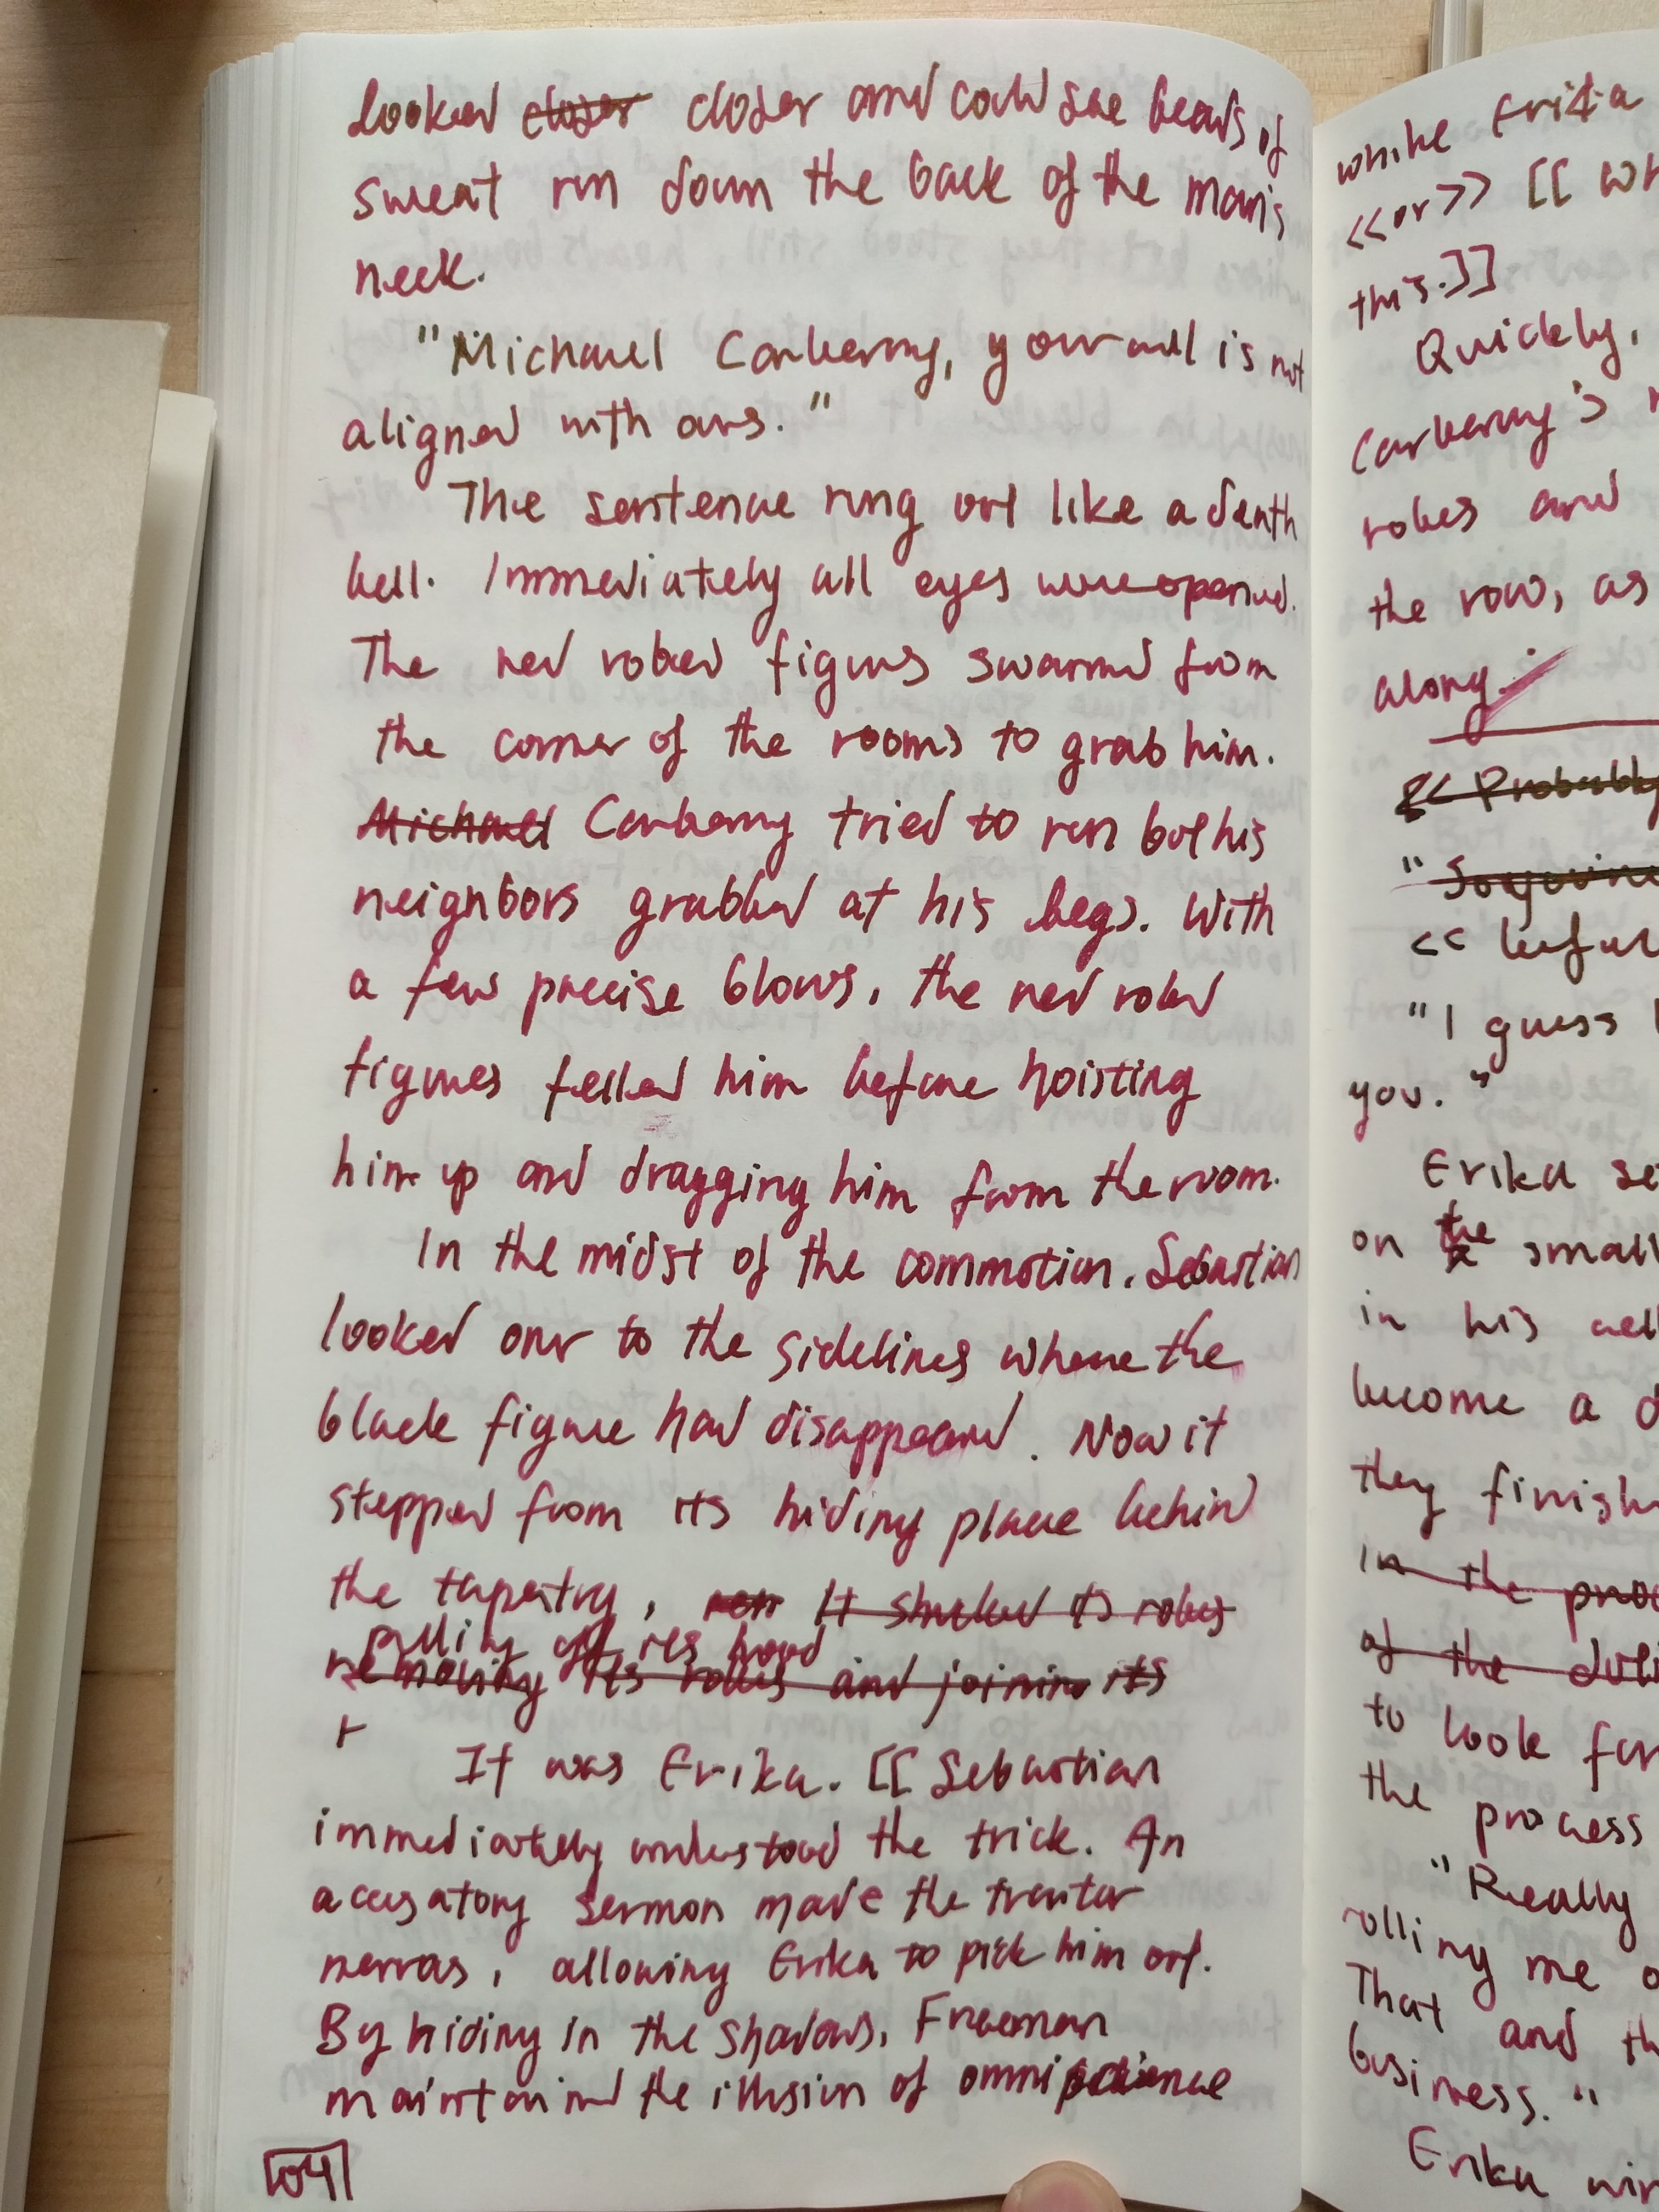 looked closer closer and could see beads of
sweat run down the back of the man's
neck.
"Michael Carberry, your will is not
aligned with ours."
The sentence rung out like a death
bell. Immediately all eyes were opened.
The red robed figures swarmed from
the corner of the rooms to grab him.
Michael Carberry tried to run but his
neighbors grabbed at his legs. With
a few precise blows, the red robed
figures felled him before hoisting
him up and dragging him from the room.
In the midst of the commotion, Sebastian
looked over to the sidelines where the
black figure had disappeared. Now it
stepped from its hiding place behind
the tapestry, It shucked its robes
pulling off its hood
removing its robes and joining its
It was Erika. [[ Sebastian
immediately understood the trick. An
accusatory sermon made the traitor
nervous, allowing Erika to pick him out.
By hiding in the shadows, Freeman
maintained the illusion of omniscience
104
while Erika
<<or>> [[ wh
this.]]
Quickly,
Carberry's
robes and
the row, as
along.
<< Probably
"
<<
"I guess
you."
Erika se
on the small
in his cell
become a d
they finish
in the proc
of the
to look for
the process
"Really
rolling me o
That and th
business."
Erika win